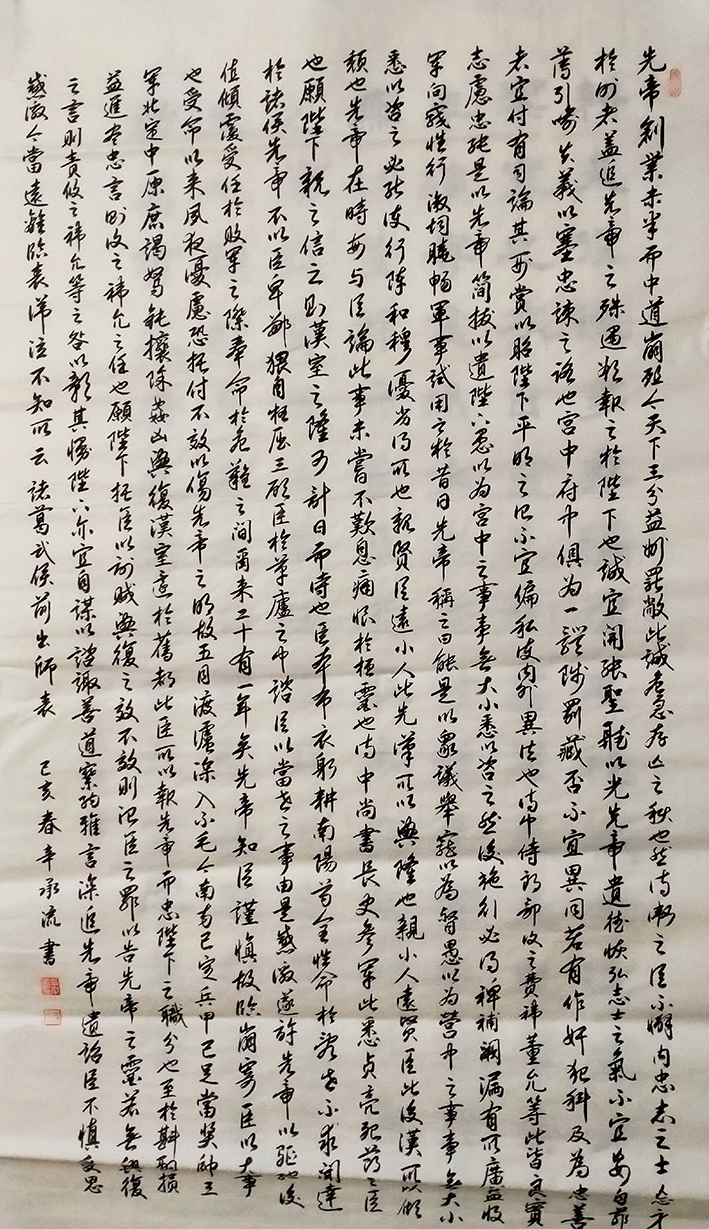 先帝創業未半而中道崩殂今天下三分益州罷敝此誠危急存亡之秋也然侍衛之臣不懈内忠志之士忘身
於外者蓋追先帝之殊遇欲報之於陛下也誠宜開張聖聽以光先帝遺德恢弘志士之氣不宜妄自菲
薄引喻失義以塞忠諫之路也宮中府中俱為一體陟罰臧否不宜異同若有作奸犯科及為忠善
者宜付有司論其刑賞以昭陛下平明之理不宜偏私使内外異法也侍中侍郎郭攸之費禕董允等此皆良實
志慮忠純是以先帝簡拔以遺陛下愚以為宮中之事事無大小悉以咨之然後施行必得裨補闕漏有所廣益將
軍向寵性行淑均曉暢軍事試用之於昔日先帝稱之曰能是以眾議舉寵以為督愚以為營中之事事無大小
悉以咨之必能使行陣和穆優劣得所也親賢臣遠小人此先漢所以興隆也親小人遠賢臣此後漢所以傾
頹也先帝在時每与臣論此事未嘗不歎息痛恨於桓靈也侍中尚書長史參軍此悉貞亮死節之臣
也願陛下親之信之則漢室之隆可計日而待也臣本布衣躬耕南陽苟全性命於亂世不求聞達
於諸侯先帝不以臣卑鄙猥自枉屈三顧臣於草廬之中諮臣以當世之事由是感激遂許先帝以驅馳後
值傾覆受任於敗軍之際奉命於危難之間爾来二十有一年矣先帝知臣謹慎故臨崩寄臣以大事
也受命以来夙夜憂慮恐托付不效以傷先帝之明故五月渡瀘深入不毛今南方已定兵甲已足當獎帥三
軍北定中原庶竭駑鈍攘除姦凶興復漢室還於舊都此臣所以報先帝而忠陛下之職分也至於斟酌損
益進盡忠言則攸之禕允之任也願陛下托臣以討賊興復之效不效則治臣之罪以告先帝之靈若無興復
之言則責攸之禕允等之咎以彰其慢陛下亦宜自謀以諮諏善道察納雅言深追先帝遺詔臣不慎受恩
感激今當遠離臨表涕泣不知所云諸葛武侯前出師表 己亥春辛承流書